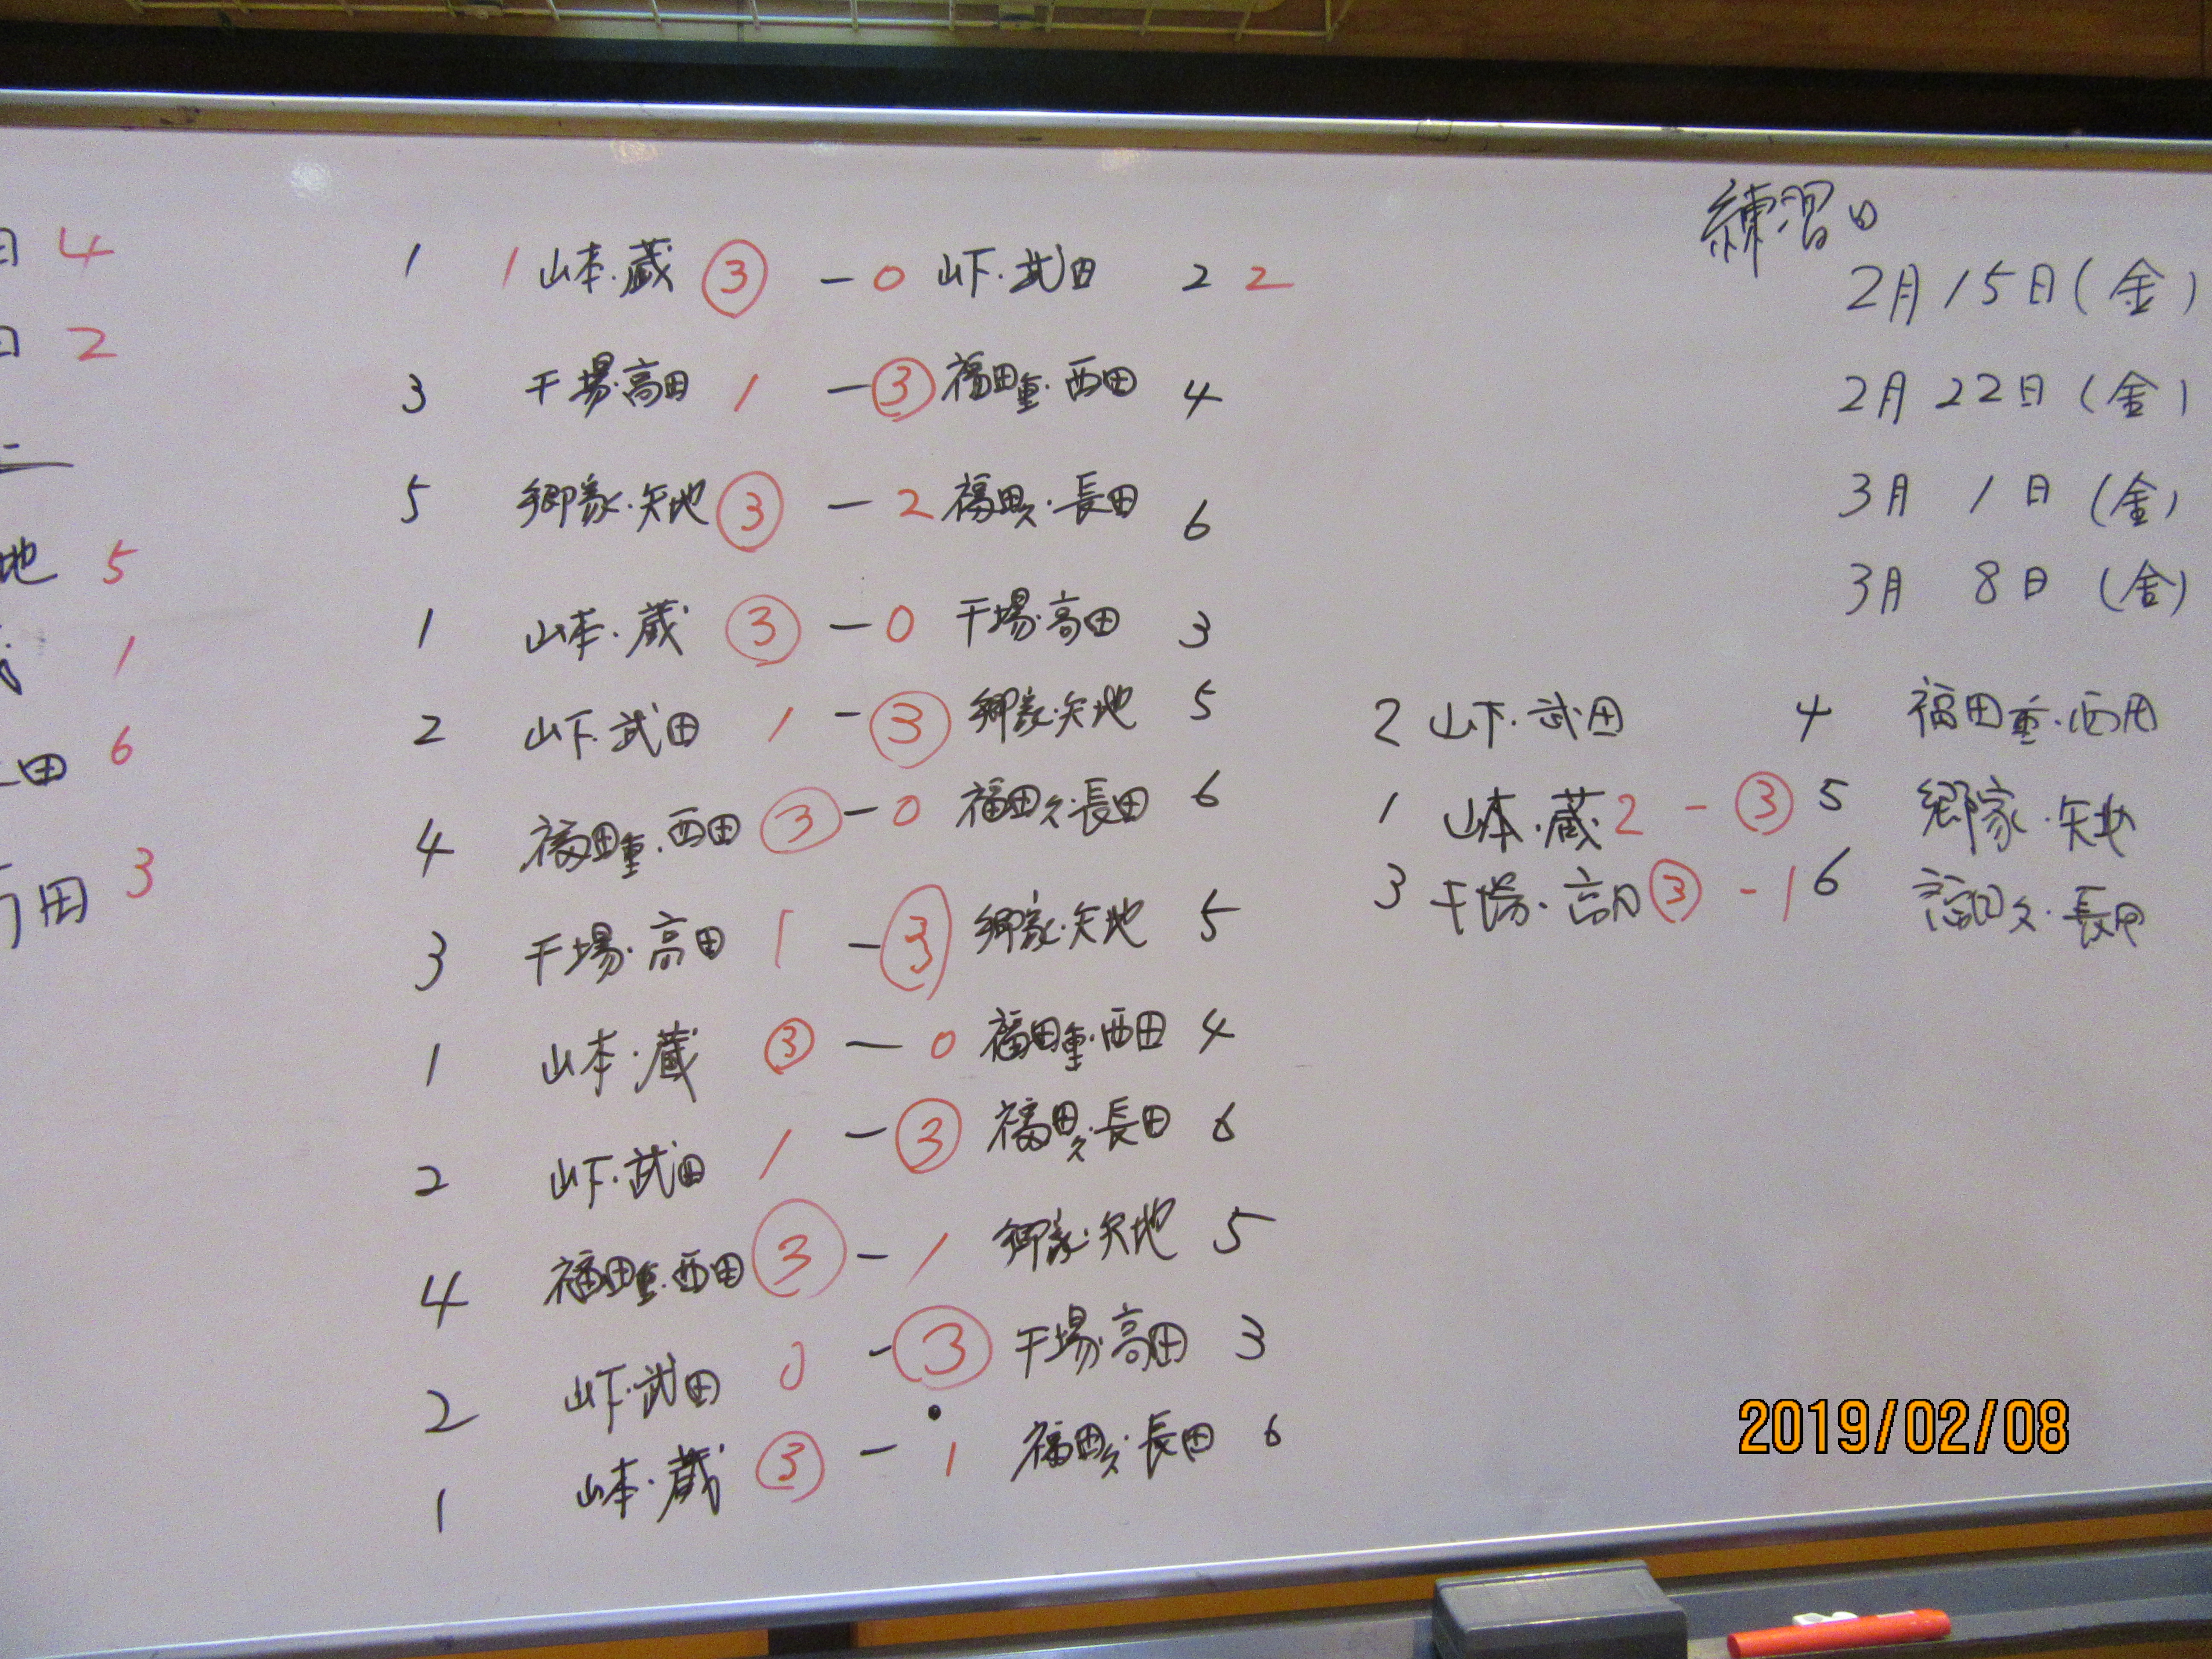 田 4
田 2
地 5
1
田 6
田 3
1 1 山本・蔵 ③ - 0 山下・武田 2 2
3 干場・高田 1 - ③ 福田重・西田 4
5 郷家・矢地 ③ - 2 福田久・長田 6
1 山本・蔵 ③ - 0 干場・高田 3
2 山下・武田 1 - ③ 郷家・矢地 5
4 福田重・西田 ③ - 0 福田久・長田 6
3 干場・高田 1 - ③ 郷家・矢地 5
1 山本・蔵 ③ - 0 福田重・西田 4
2 山下・武田 1 - ③ 福田久・長田 6
4 福田重・西田 ③ - 1 郷家・矢地 5
2 山下・武田 0 - ③ 干場・高田 3
1 山本・蔵 ③ - 1 福田久・長田 6
練習日
2月15日(金)
2月22日(金)
3月1日(金)
3月8日(金)
2 山下・武田 4 福田重・西田
1 山本・蔵 2 - ③ 5 郷家・矢地
3 干場・高田 ③ - 1 6 福田久・長田
2019/02/08